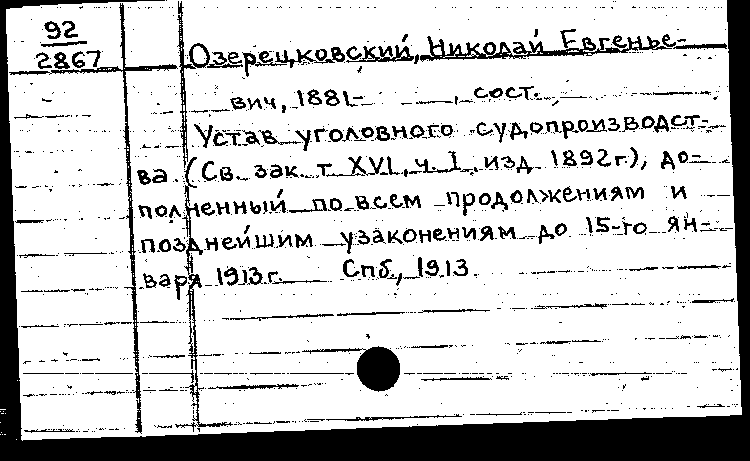 92
2867
Озерецковский, Николай Евгенье-
вич, 1881- , сост.
Устав уголовного судопроизводст-
ва. (Св. зак. т. XVI, ч. I, изд. 1892г.), до-
полненный по всем продолжениям и
позднейшим узаконениям до 15-го ян-
варя 1913г. Спб., 1913.